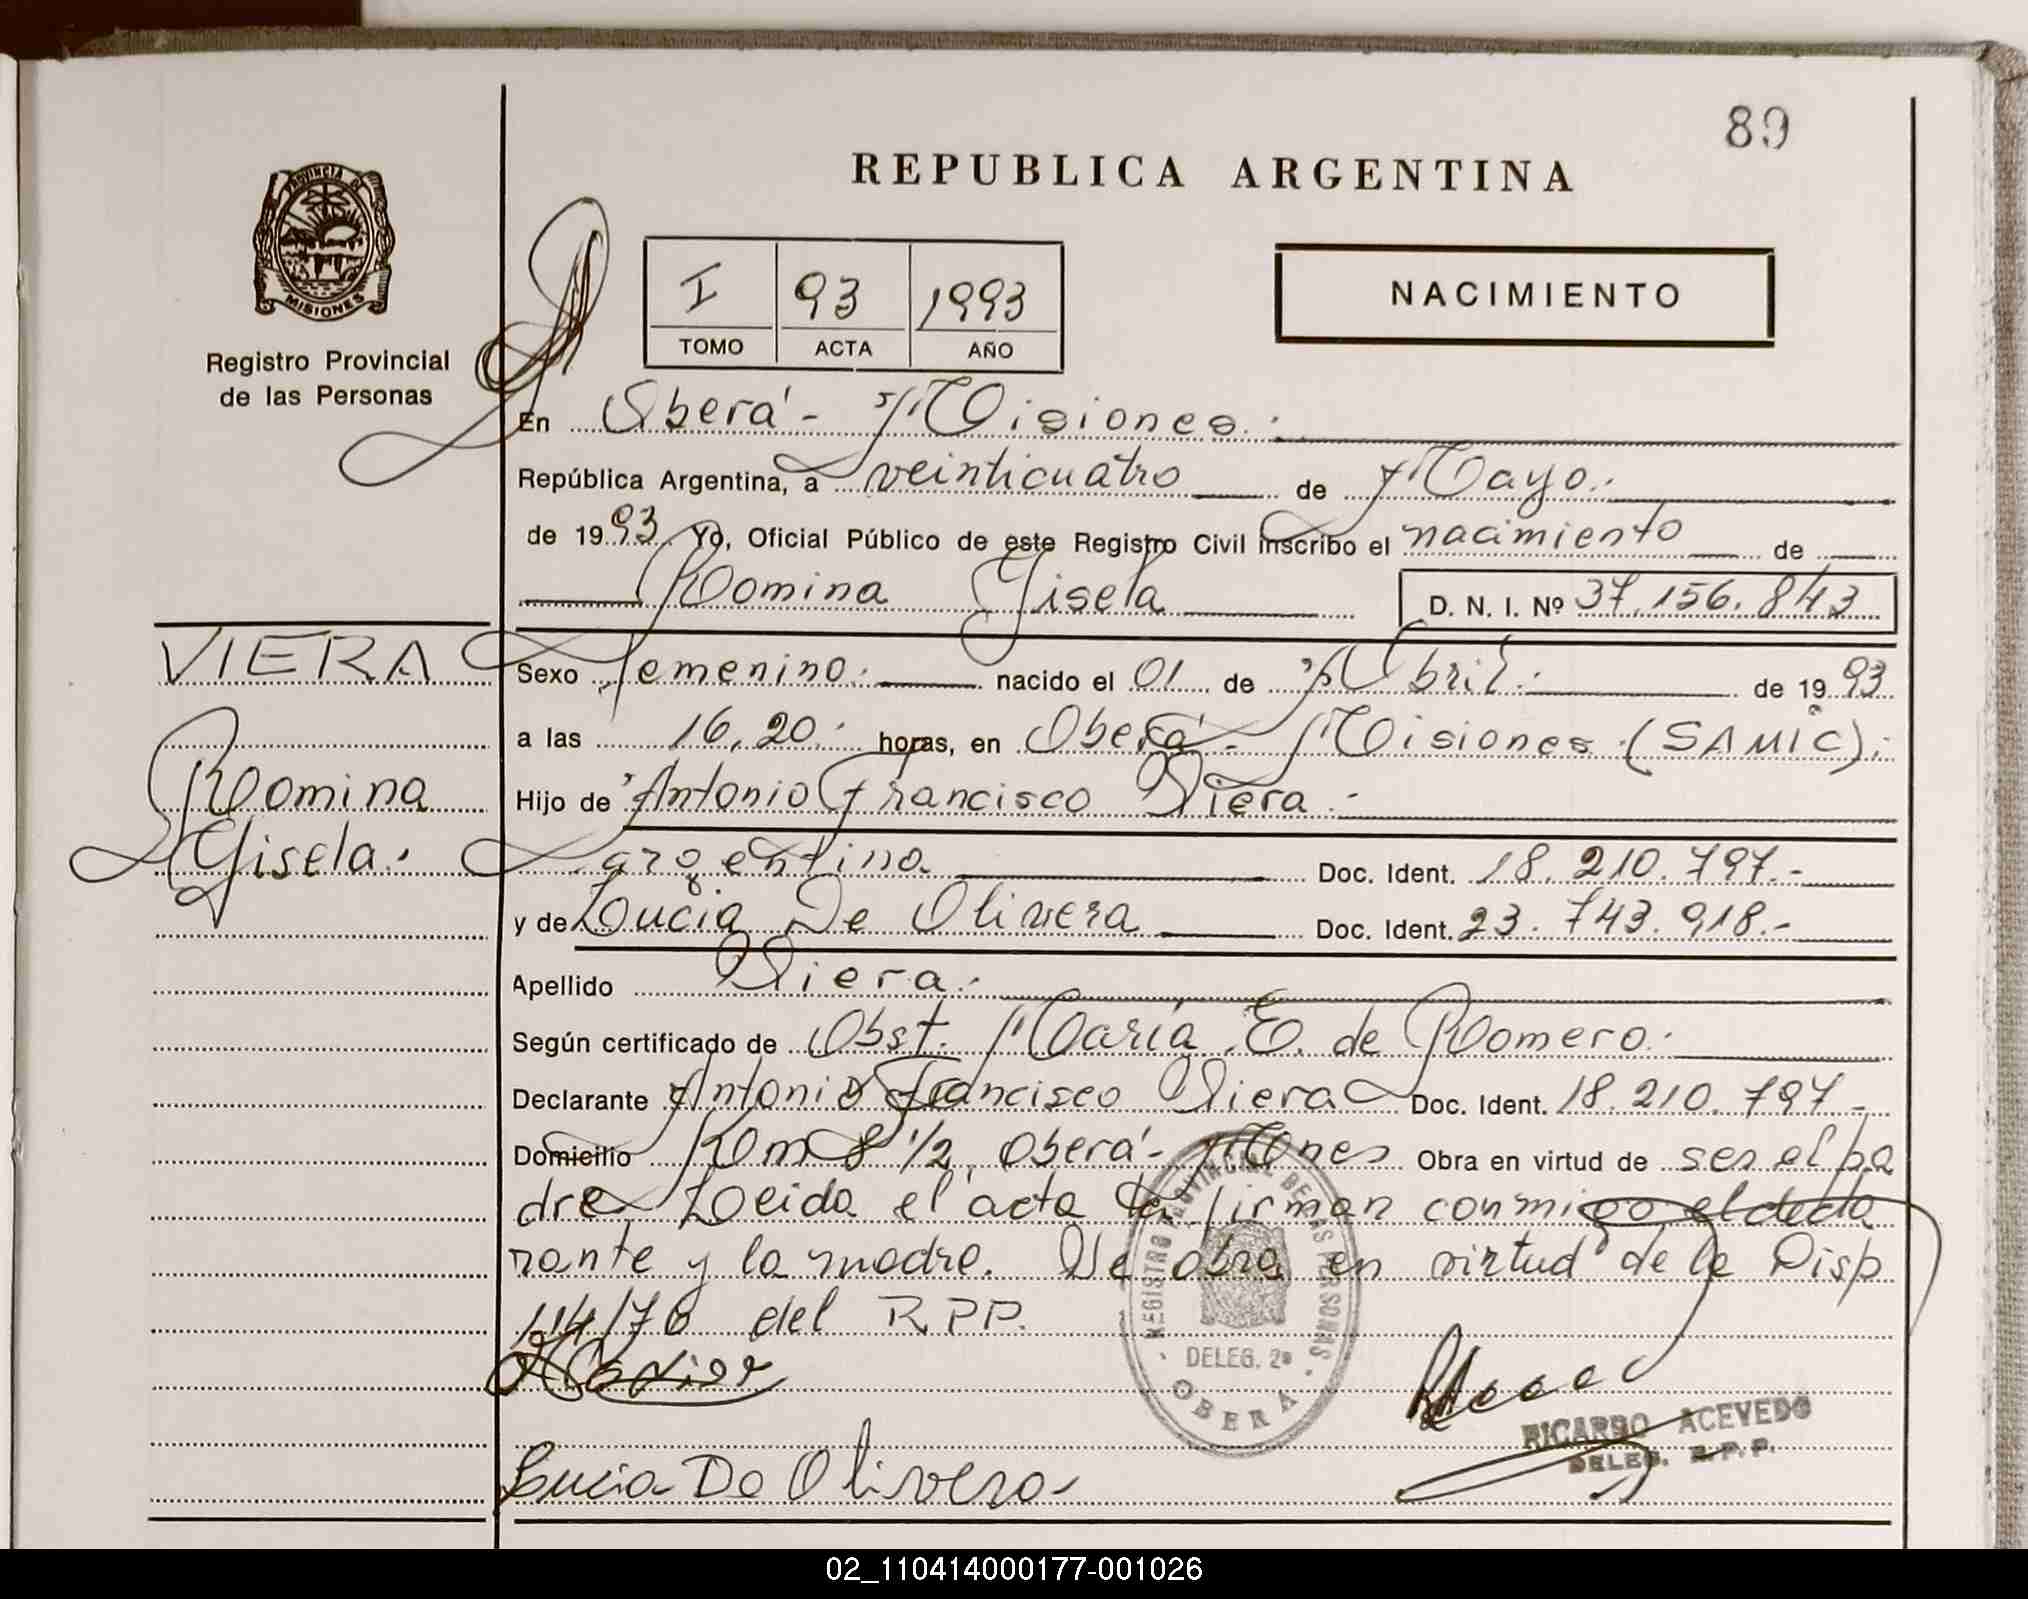 89
REPUBLICA ARGENTINA
PROVINCIA DE
MISIONES
Registro Provincial
de las Personas
I 93 1993
TOMO ACTA AÑO
NACIMIENTO
En Oberá - Misiones.
República Argentina, a veinticuatro de Mayo.
de 1993 Yo, Oficial Público de este Registro Civil inscribo el nacimiento de
Romina Gisela D. N. I. Nº 37.156.843
VIERA
Romina
Gisela.
Sexo femenino. nacido el 01 de Abril. de 1993
a las 16,20. horas, en Oberá - Misiones (SAMIC).
Hijo de Antonio Francisco Viera.-
argentino Doc. Ident. 18.210.797.-
y de Lucia De Olivera Doc. Ident. 23.743.918.-
Apellido Viera.
Según certificado de Obst. María E. de Romero.
Declarante Antonio Francisco Viera Doc. Ident. 18.210.797-
Domicilio Km 8 1/2 Oberá - Mnes Obra en virtud de ser el pa
dre Leida el acta la firman conmigo el decla
rante y la madre. Se obra en virtud de la Disp
114/76 del RPP.
Lucia De Olivera
REGISTRO PROVINCIAL DE LAS PERSONAS
DELEG. 2ª
OBERA
RICARDO ACEVEDO
DELEG. R.P.P.
02_110414000177-001026